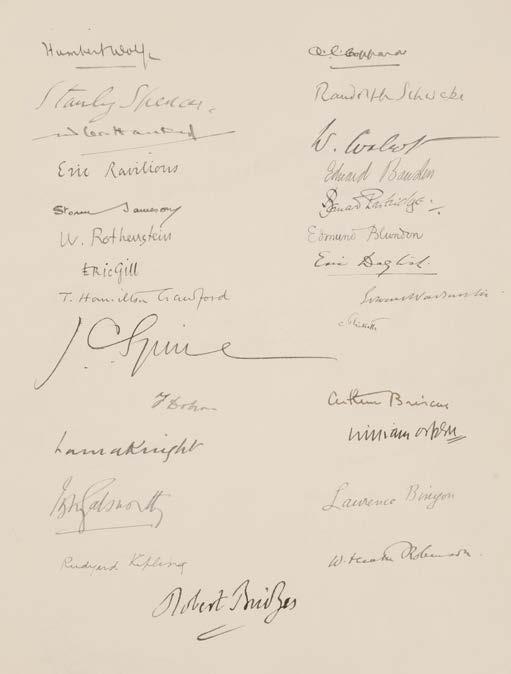 Humbert Wolfe
A. E. Coppard
Stanley Spencer.
Randolph Schwabe
W. Walcot
Eric Ravilious
Edward Bawden
Storm Jameson
Bernard Partridge.
W. Rothenstein
Edmund Blunden
Eric Gill
Eric Daglish.
T. Hamilton Crawford
J. C. Squire
F Dobson
Arthur Briscoe
Laura Knight
William Orpen
John Galsworthy
Laurence Binyon
Rudyard Kipling
W. Heath Robinson.
Robert Bridges